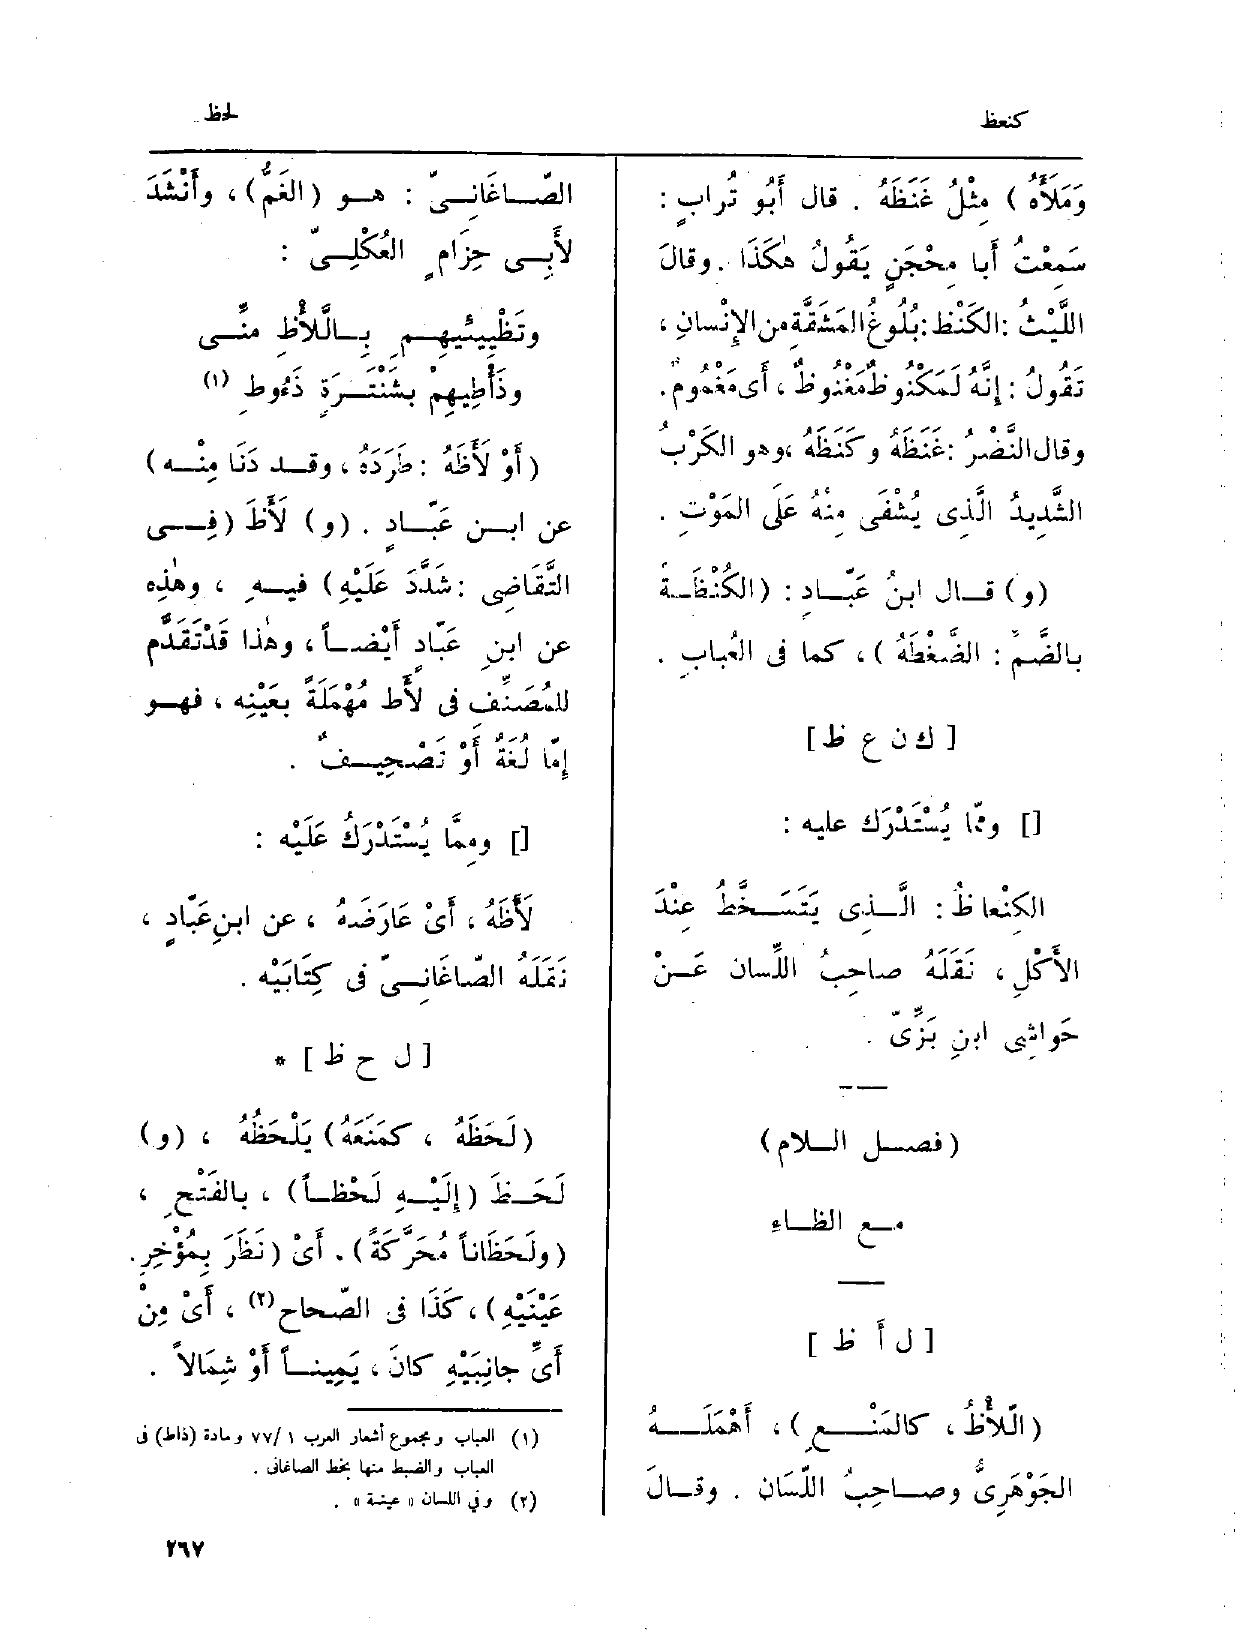 كنعظ
لحظ
وَمَلأَه ) مِثْلُ غَنَظَهُ . قال أَبُو تُرابٍ :
سَمِعْتُ أَبا مِحْجَنٍ يَقُولُ هٰكَذَا . وقالَ
اللَّيْثُ : الكَنْظ : بُلُوغُ المَشَقَّةِ من الإِنْسانِ ،
تَقُولُ : إِنَّهُ لَمَكْنُوظٌ مَغْنُوظٌ ، أَى مَغْمُومٌ .
وقال النَّضْرُ : غَنَظَهُ وكَنَظَهُ ، وهو الكَرْبُ
الشَّدِيدُ الَّذِى يُشْفَى مِنْهُ عَلَى المَوْتِ .
(و) قــال ابنُ عَبّــادٍ : (الكُنْظَــةُ
بالضَّمِّ : الضَّغْطَةُ ) ، كما فى العُبابِ .
[ ك ن ع ظ ]
[] وممّا يُسْتَدْرَك عليه :
الكِنْعاظُ : الَّــذِى يَتَسَــخَّطُ عِنْدَ
الأَكْلِ ، نَقَلَهُ صاحِبُ اللِّسان عَــنْ
حَواشِى ابنِ بَرِّىّ .
(فصــل الــلام)
مــع الظــاء
[ ل أ ظ ]
(الَّلأْظُ ، كالمَنْــعِ ) ، أَهْمَلَــهُ
الجَوْهَرِىُّ وصــاحِبُ اللِّسَان . وقــالَ
الصّــاغَانِــىّ : هــو (الغَمُّ) ، وأَنْشَدَ
لأَبِــى حِزَامٍ العُكْلِــىّ :
وتَظْيِيئيهِــم بِــالَّلأْظِ مِنِّــى
وذَأْطِيهِمْ بشَنْتَــرَةٍ ذَءُوطِ (١)
(أَوْ لَأَظَهُ : طَرَدَهُ ، وقــد دَنَا مِنْــه )
عن ابــن عَبّــادٍ . (و) لأَظَ (فِــى
التَّقَاضِى : شَدَّدَ عَلَيْهِ ) فيــهِ ، وهٰذِه
عن ابنِ عَبّادٍ أَيْضــاً ، وهٰذا قَدْ تَقَدَّم
للمُصَنِّف فى لأَط مُهْمَلَةً بعَيْنِه ، فهــو
إِمّا لُغَةٌ أَوْ تَصْحِيــفٌ .
[] ومِمَّا يُسْتَدْرَكُ عَلَيْه :
لَأَظَهُ ، أَىْ عَارَضَهُ ، عن ابنِ عَبّادٍ ،
نَقَلَهُ الصّاغَانِــىّ فى كِتَابَيْه .
[ ل ح ظ ] *
(لَحَظَهُ ، كمَنَعَهُ) يَلْحَظُهُ ، (و)
لَحَــظَ (إِلَيْــهِ لَحْظــاً) ، بالفَتْحِ ،
(ولَحَظَاناً مُحَرَّكَةً) . أَىْ (نَظَرَ بِمُؤْخِرِ .
عَيْنَيْهِ ) ، كَذَا فى الصّحاح (٢) ، أَىْ مِنْ
أَىِّ جانِبَيْهِ كانَ ، يَمِينــاً أَوْ شِمَالاً .
(١) العباب ومجموع أشعار العرب ١ /٧٧ ومادة (ذاط) فى
العباب والضبط منها بخط الصاغانى .
(٢) وفي اللسان « عينه » .
٢٦٧